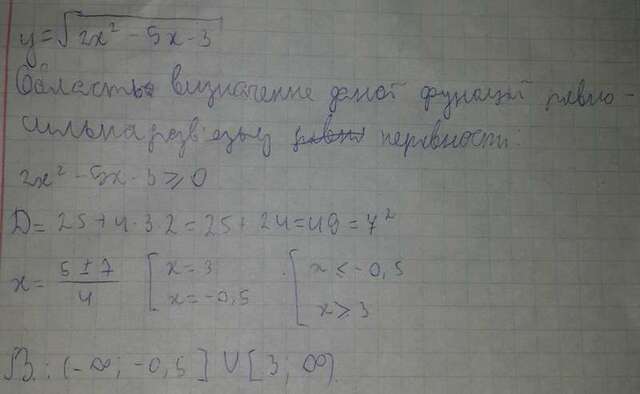 y=√2x² - 5x - 3
Область визначення даної функції рівно-
сильна розв'язку нерівності:
2x² - 5x - 3 ≥ 0
D = 25 + 4·3·2 = 25 + 24 = 49 = 7²
x = (5 ± 7)/4 [x = 3 x = -0,5 [x ≤ -0,5 x ≥ 3
В.: (-∞; -0,5] ∪ [3; ∞).